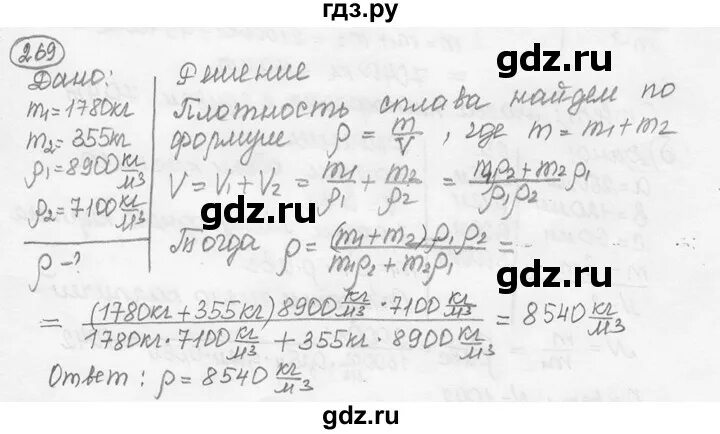 гдз.ру
269
Дано:
m₁=1780кг
m₂=355кг
ρ₁=8900 кг/м3
ρ₂=7100 кг/м3
ρ-?
Решение
Плотность сплава найдем по
формуле ρ = m/V, где m = m₁+m₂
V = V₁+V₂ = m₁/ρ₁ + m₂/ρ₂ = (m₁ρ₂+m₂ρ₁)/(ρ₁ρ₂)
Тогда ρ = (m₁+m₂)ρ₁ρ₂/(m₁ρ₂+m₂ρ₁) =
= (1780кг+355кг)8900 кг/м3 · 7100 кг/м3 / (1780кг·7100 кг/м3 + 355кг·8900 кг/м3) = 8540 кг/м3
Ответ: ρ = 8540 кг/м3
gdz.ru
gdz.ru
gdz.ru
gdz.ru
gdz.ru
gdz.ru
gdz.ru
gdz.ru